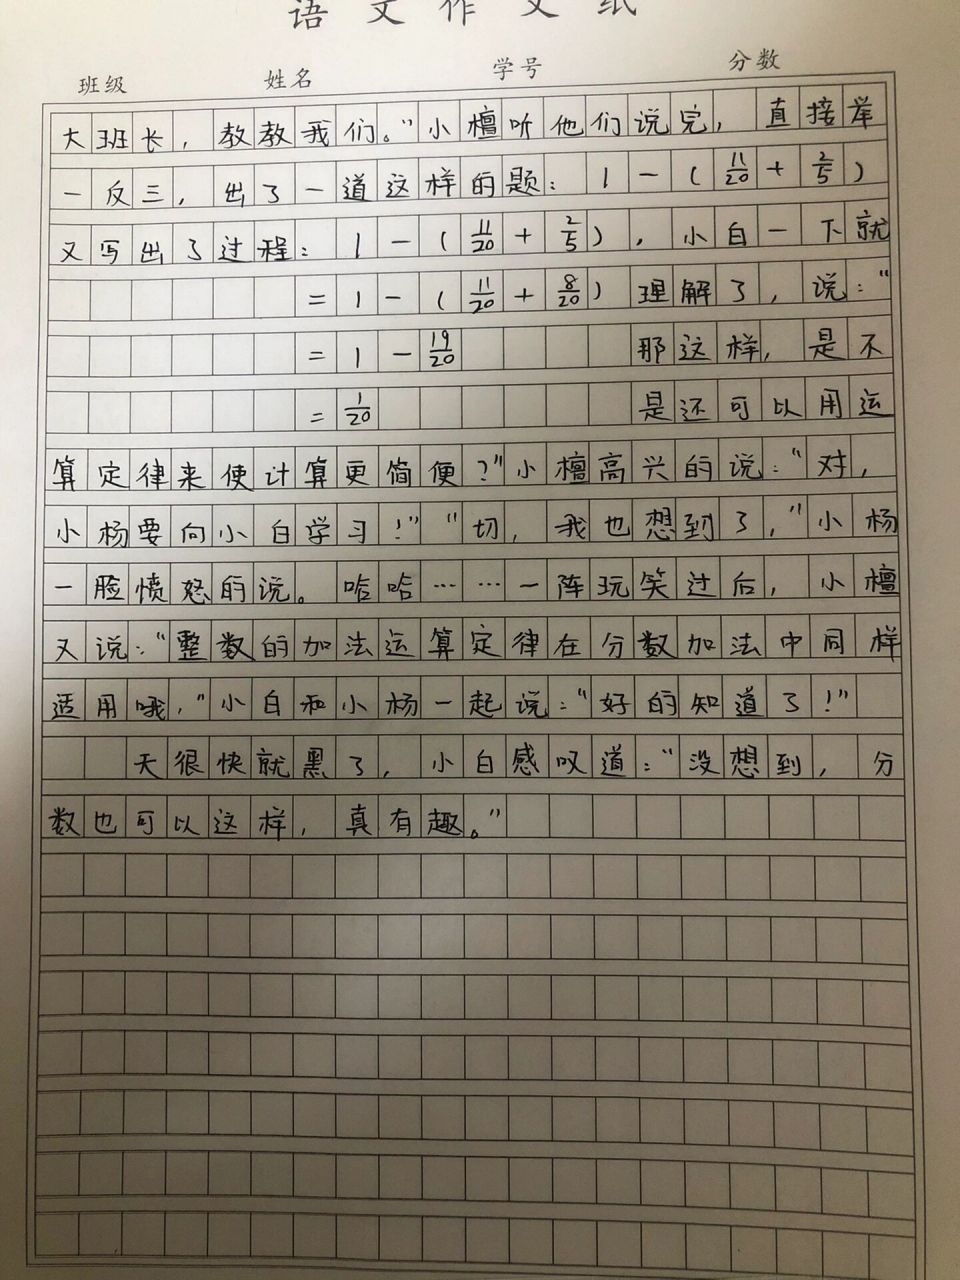 语文作文纸
班级 姓名 学号 分数
大班长，教教我们。”小檀听他们说完，直接举
一反三，出了一道这样的题：1－(11/20＋2/5)
又写出了过程：1－(11/20＋2/5)，小白一下就
＝1－(11/20＋8/20) 理解了，说：“
＝1－19/20 那这样，是不
＝1/20 是还可以用运
算定律来使计算更简便？”小檀高兴的说：“对，
小杨要向小白学习！”“切，我也想到了，”小杨
一脸愤怒的说。哈哈……一阵玩笑过后，小檀
又说：“整数的加法运算定律在分数加法中同样
适用哦，”小白和小杨一起说：“好的知道了！”
天很快就黑了，小白感叹道：“没想到，分
数也可以这样，真有趣。”